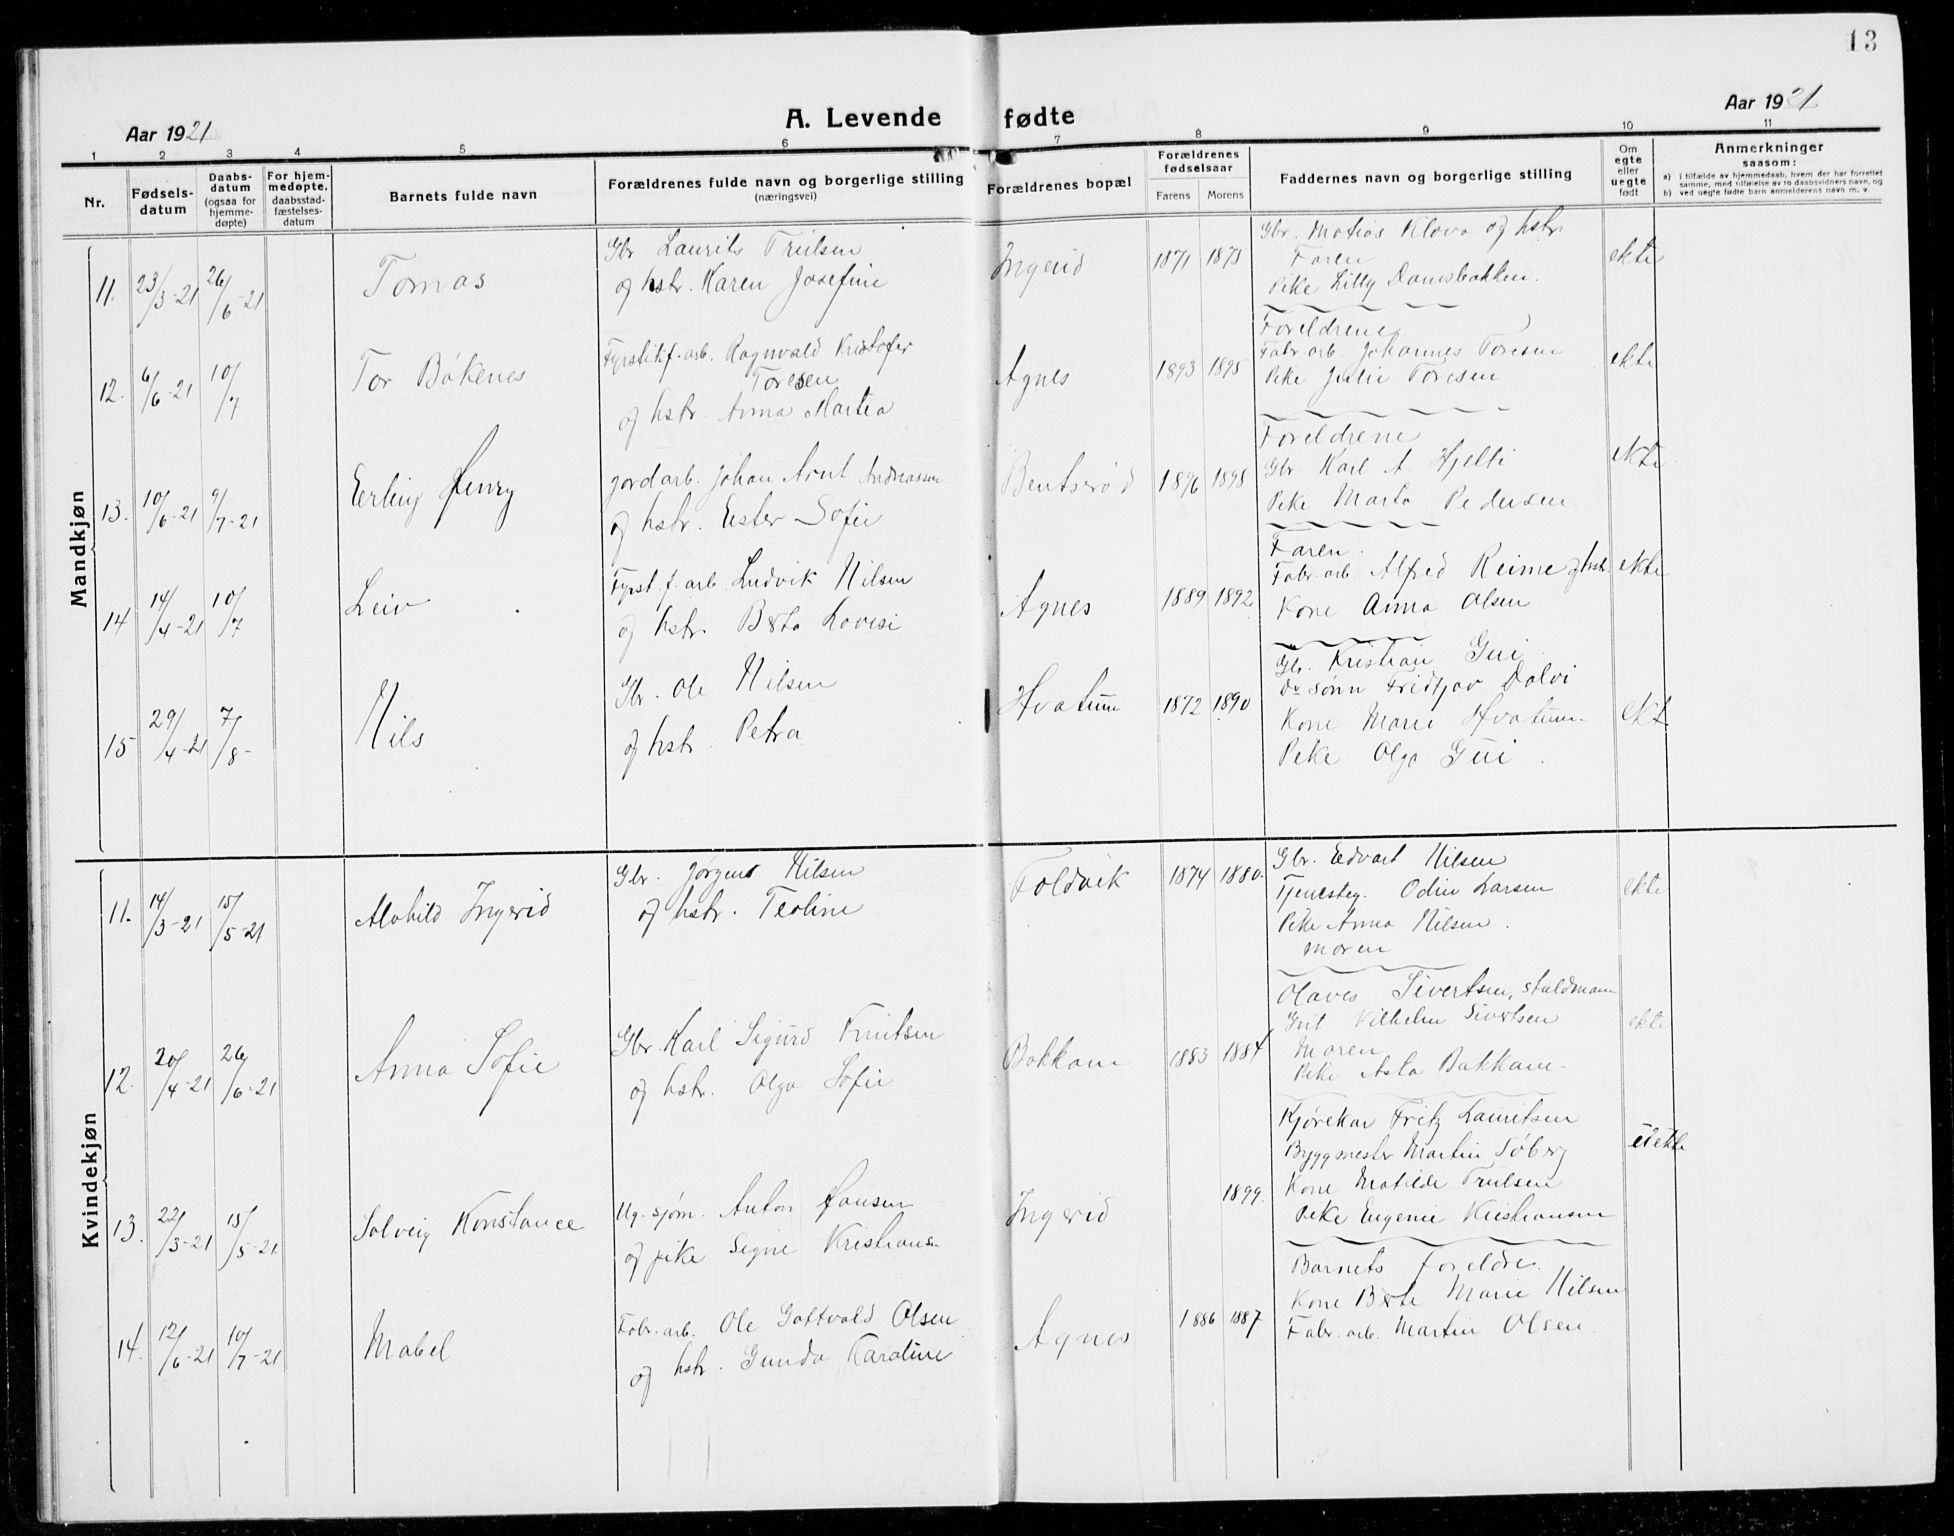 13
Aar 1921
A. Levende fødte
Aar 1921
1 2 3 4 5 6 7 8 9 10 11
Nr.
Fødselsdatum
Daabsdatum (ogsaa for hjemmedøpte)
For hjemmedøpte, daabsstadfæstelsesdatum
Barnets fulde navn
Forældrenes fulde navn og borgerlige stilling
(næringsvei)
Forældrenes bopæl
Forældrenes fødselsaar
Farens Morens
Faddernes navn og borgerlige stilling
Om egte eller uegte født
Anmerkninger
saasom:
a) i tilfælde av hjemmedaab, hvem der har forrettet samme, med tilføielse av to daabsvidners navn, og
b) ved uegte fødte barn anmelderens navn m. v.
Mandkjøn
11. 23/3-21 26/6-21 Tomas
Gbr Laurits Trulsen
og hstr. Karen Josefine
Ingerid 1871 1875
Gbr. Matias Klova og hstr.
Faren
Pike Lilly Damsbakken.
ekte
12. 6/6-21 10/7 Tor Bøkenes
Fyrstikf. arb. Ragnvald Kristofer
Toresen
og hstr. Anna Martea
Agnes 1893 1895
Foreldrene
Fabr. arb. Johannes Toresen
Pike Julie Toresen
ekte
13. 10/6-21 9/7-21 Eerling Henry
jordarb. Johan Arnt Andreassen
og hstr. Ester Sofie
Bentserød 1896 1898
Foreldrene
Gbr Karl A. Hjelti
Pike Marta Pedersen
ekte
14 14/4-21 10/7 Leiv
Fyrst. f. arb Ludvik Nilsen
og hstr. Berta Lovisi
Agnes 1889 1892
Faren.
Fabr. arb. Alfred Reime og hstr.
Kone Anna Olsen
ekte
15 29/4-21 7/8- Nils
Gbr. Ole Nilsen
og hstr. Petra
Hvatum 1872 1890
Gbr. Kristian Gui
Do sønn Fridtjov Dalvi
Kone Marie Hvatum.
Pike Olga Gui.
ekt
Kvindekjøn
11. 14/3-21 15/5-21 Alvhild Ingerid
Gbr. Jørgens Nilsen
og hstr. Teoline
Foldvik 1874 1880.
Gbr. Eedvart Nilsen
Tjenesteg. Odin Larsen
Pike Anna Nilsen.
moren
ekte
12. 20/4-21 26/6-21 Anna Sofie
Gbr. Karl Sigurd Knutsen
og hstr. Olga Sofie
Bakkane 1883 1884
Olaves Sivertsen, staldmann
Gut Vilhelm Sivertsen
Moren
Pike Asta Bakkane.
ekte
13. 22/3-21 15/5-21 Solveig Konstance
Ug. sjøm. Anton Hansen
og pike Signe Kristians
Ingerid 1899.
Kjørekar Fritz Lauritsen
Byggmester Martin Søberg
Kone Matilde Trulsen
Pike Eugenie Kristiansen
uekte
14. 12/6-21 10/7-21 Mabel
Fabr. arb. Ole Gottvald Olsen
og hstr. Gunda Karoline
Agnes 1886 1887
Barnets foreldre.
Kone Berte Marie Nilsen
Fabr. arb. Martin Olsen